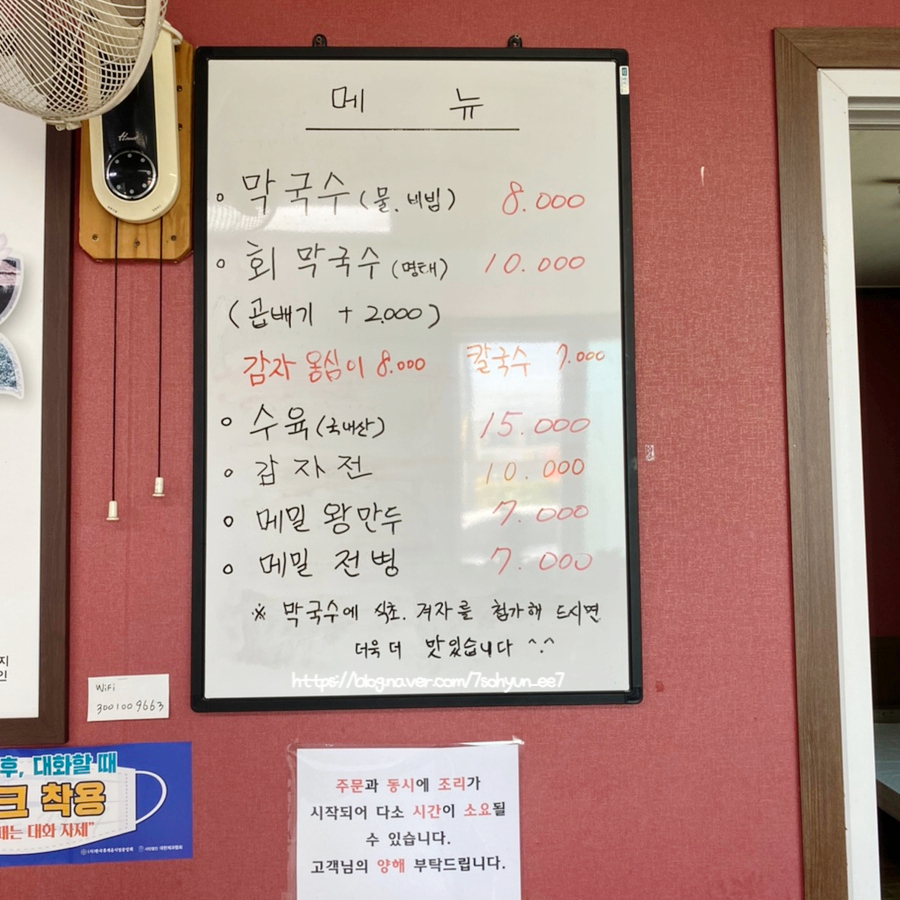 메 뉴
막국수 (물, 비빔) 8.000
회 막국수 (명태) 10.000
(곱배기 + 2.000)
감자 옹심이 8.000 칼국수 7.000
수육 (국내산) 15.000
감자전 10.000
메밀 왕만두 7.000
메밀 전병 7.000
※ 막국수에 식초. 겨자를 첨가해 드시면
더욱 더 맛있습니다 ^.^
https://blog.naver.com/7sohyun_ee7
지
인
WiFi
3001009663
후, 대화할 때
크 착용
때는 대화 자제"
주문과 동시에 조리가
시작되어 다소 시간이 소요될
수 있습니다.
고객님의 양해 부탁드립니다.